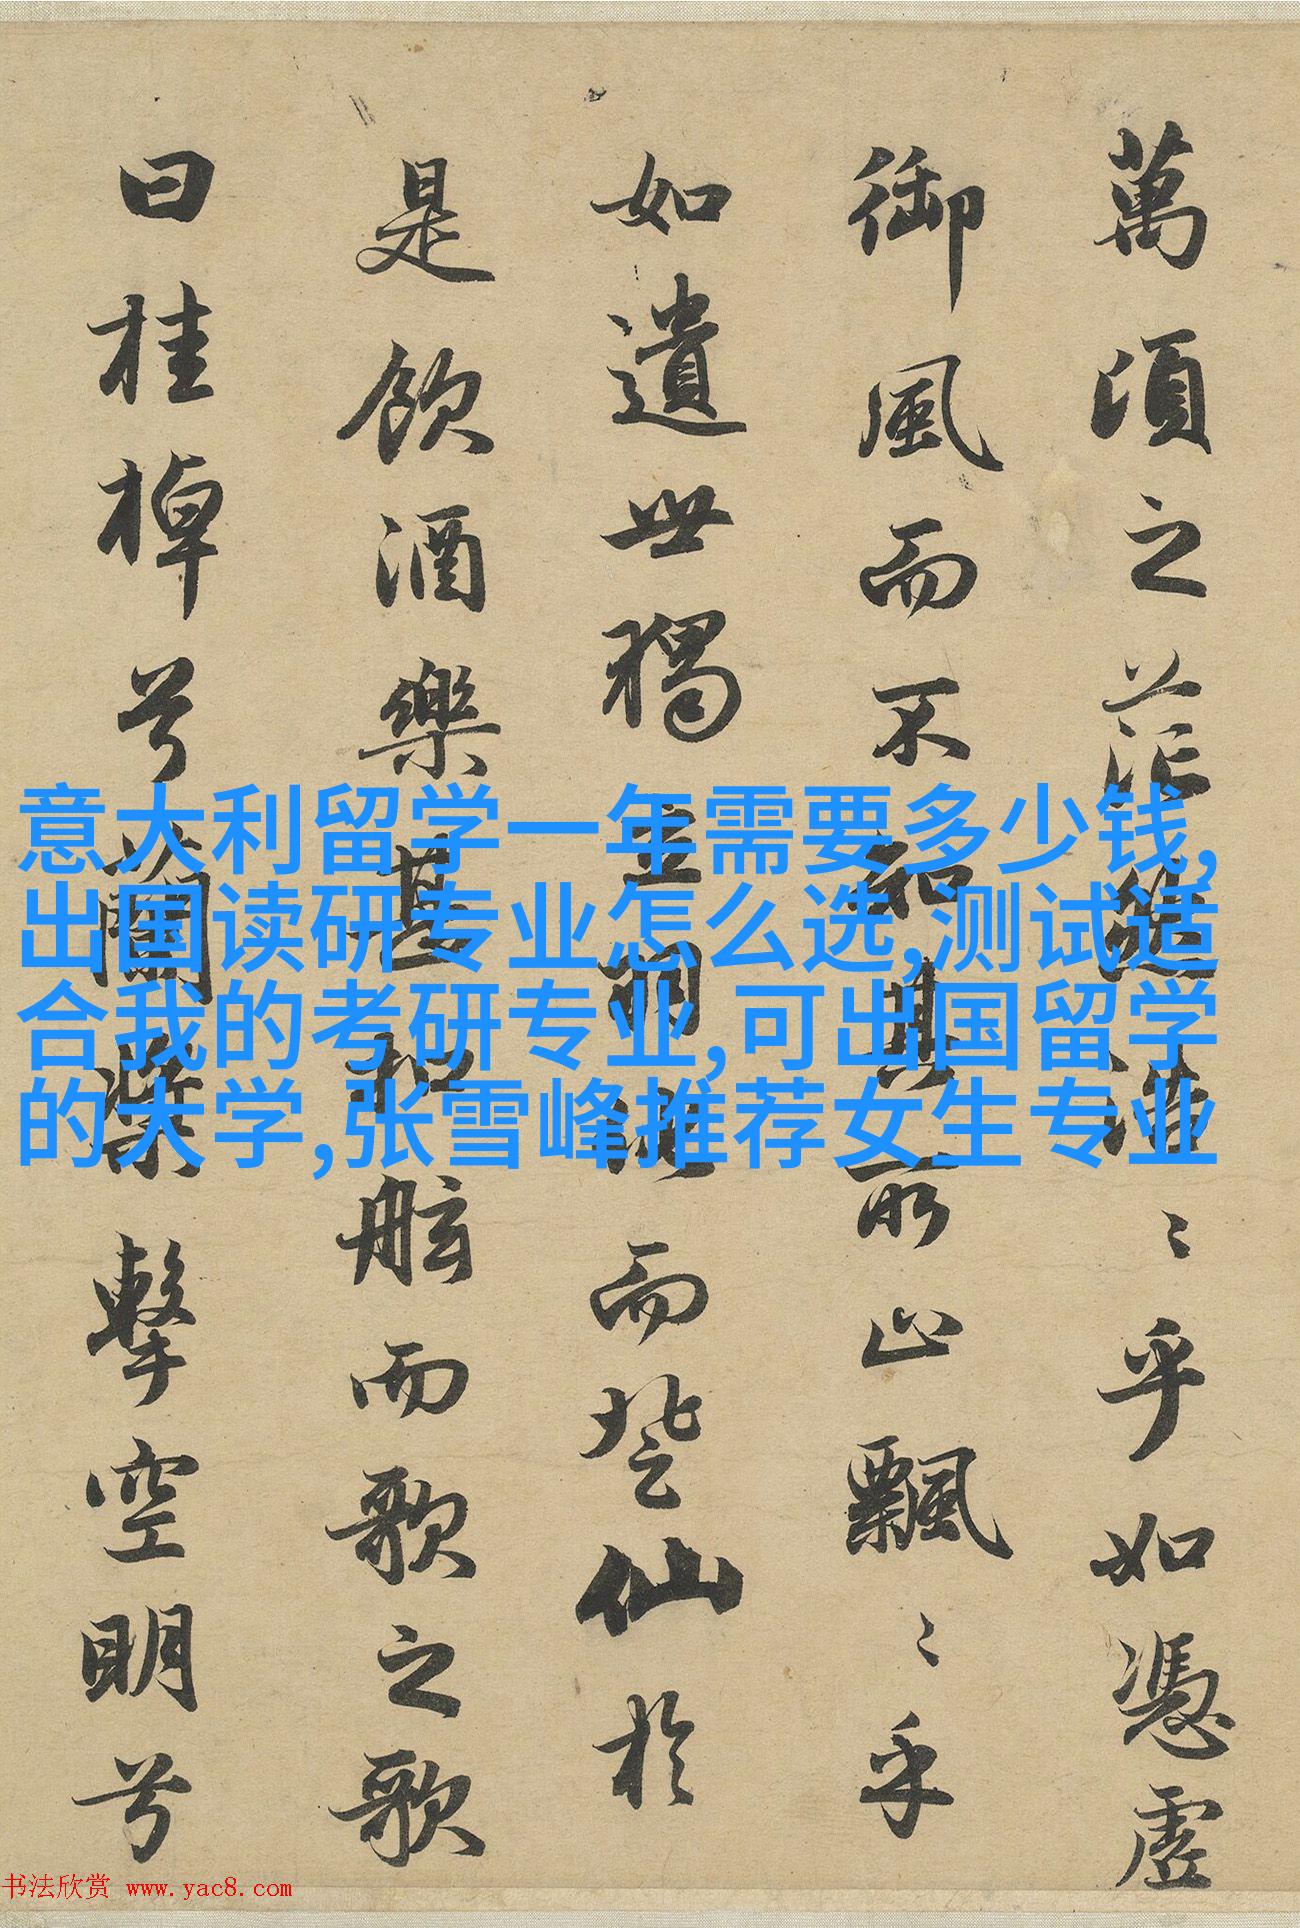 萬頃之茫然浩〻乎如憑虛
御風而不知其所止飄〻乎
如遺世獨立羽化而登仙於
是飲酒樂甚扣舷而歌之歌
曰桂棹兮蘭槳擊空明兮
意大利留学一年需要多少钱,
出国读研专业怎么选,测试适
合我的考研专业,可出国留学
的大学,张雪峰推荐女生专业
书法欣赏 www.yac8.com